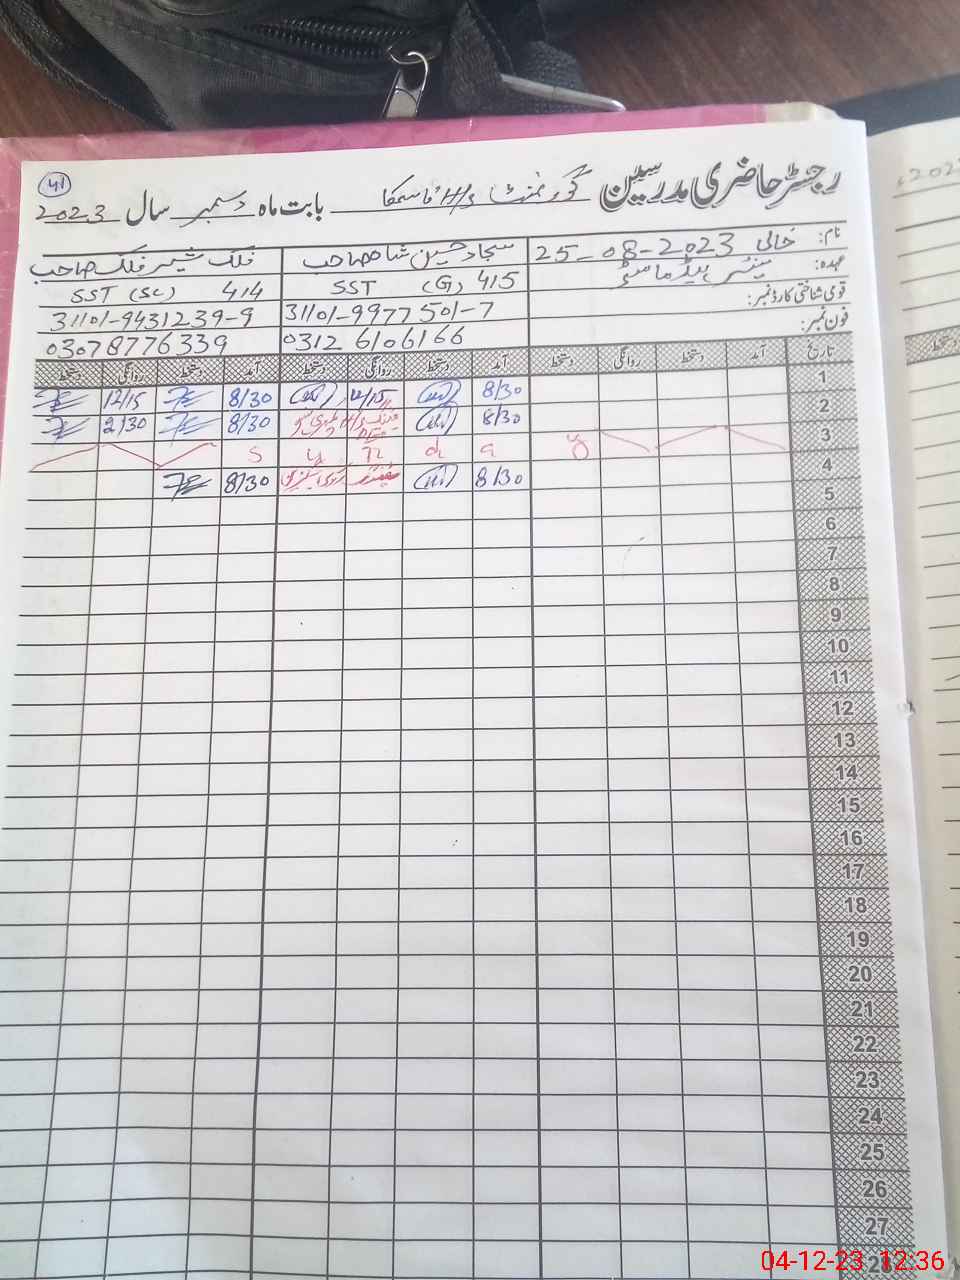 41
رجسٹر حاضری مدرسین گورنمنٹ H/S بابت ماہ دسمبر سال 2023
نام: خالی 25-08-2023
سجاد حسین شاہ صاحب
فلک شیر فلک صاحب
عہدہ: سینئر ہیڈ ماسٹر
SST (G) 415
SST (SC) 414
قومی شناختی کارڈ نمبر:
31101-9977501-7
31101-9431239-9
فون نمبر:
0312 6106166
03078776339
تاریخ آمد دستخط روانگی دستخط آمد دستخط روانگی دستخط آمد دستخط روانگی دستخط
1 8/30 12/15 8/30 12/15
2 8/30 8/30 2/30
3 S u n d a y
4 8/30 8/30
5
6
7
8
9
10
11
12
13
14
15
16
17
18
19
20
21
22
23
24
25
26
27
28
2023ء
دستخط
04-12-23 12:36